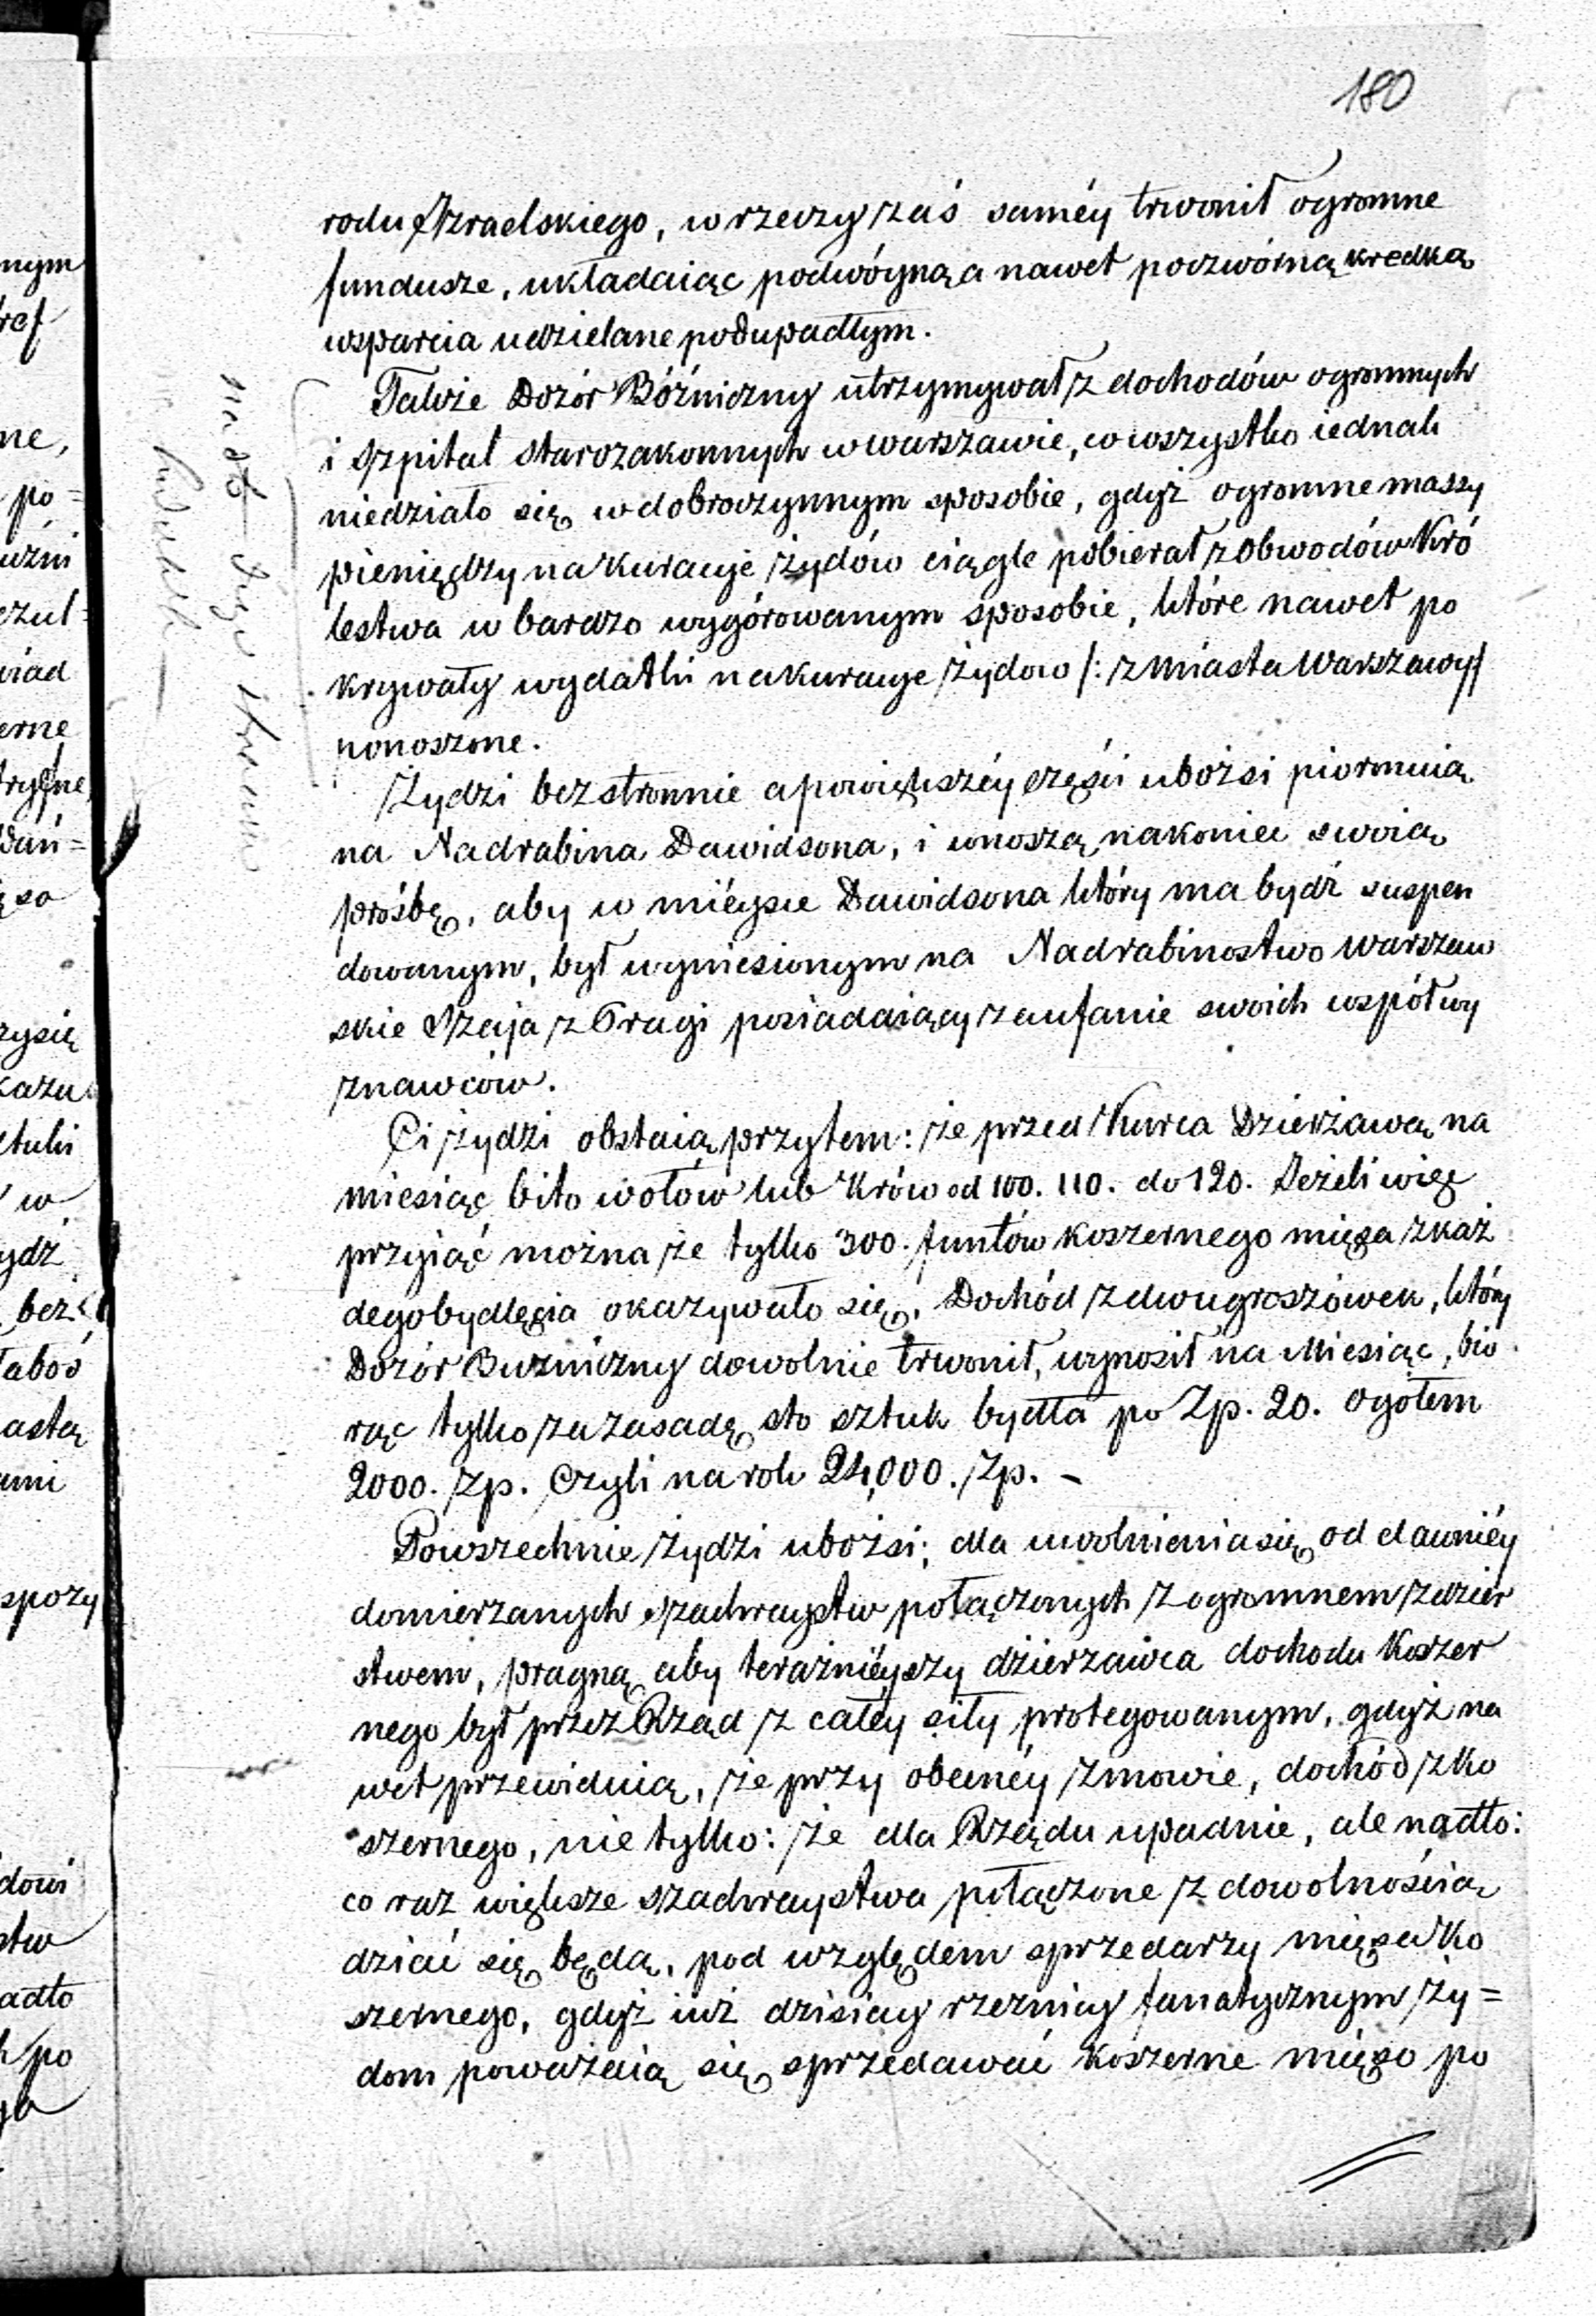 180
rodu Izraelskiego, w rzeczy zaś saméy trwonił ogromne
fundusze, układaiąc podwóyną a nawet poczwórną kredką
wsparcia udzielane podupadłym.
Także Dozór Bóźniczny utrzymywał z dochodów ogromnych
i szpital starozakonnych w Warszawie, co wszystko iednak
niedziało się w dobroczynnym sposobie, gdyż ogromne massy
pieniędzy na kuracyie żydów ciągle pobierał z Obwodów Kró
lestwa w bardzo wygórowanym sposobie, które nawet po
krywały wydatki na kuracye żydow /: z miasta Warszawy/
nonoszone.
Żydzi bezstronnie a powiększéy części ubożsi piorunią
na Nadrabina Dawidsona, i wnoszą nakoniec swoią
prośbę, aby w miéysce Dawidsona który ma bydź suspen
dowanym, był wyniesionym na Nadrabinostwo Warszaw
skie Szaja z Pragi posiadaiący zaufanie swoich współwy
znawców.
Ci żydzi obstaią przytem: że przed Kurca Dzierżawą na
miesiąc bito wołów lub Krów od 100. 110. do 120. Jeżeli więc
przyiąć można że tylko 300. funtów koszernego mięsa z każ
dego bydlęcia okazywało się, Dochód z dwugroszówek, który
Dozór Buzniczny dowolnie trwonił, wynosił na Miesiąc, bio
rąc tylko za zasadę sto sztuk bydła po Zp. 20. ogółem
2000. Zp. Czyli na rok 24,000. Zp. -
Powszechnie żydzi ubożsi; dla uwolnienia się od dawniéy
domierzanych szachraystw połączonych z ogromnem zdzier
stwem, pragną aby teraźniéyszy dzierzawca dochodu koszer
nego był przez Rząd z całéy siły protegowanym, gdyż na
wet przewidują, że przy obecnéy zmowie, dochód z ko
szernego, nie tylko: że dla Rządu upadnie, ale nadto:
co raz większe szachraystwa połączone z dowolnością
dziać się będą, pod względem sprzedarzy mięsa Ko
szernego, gdyż iuż dzisiay rzeznicy fanatycznym ży=
dom poważaią się sprzedawać koszerne mięso po